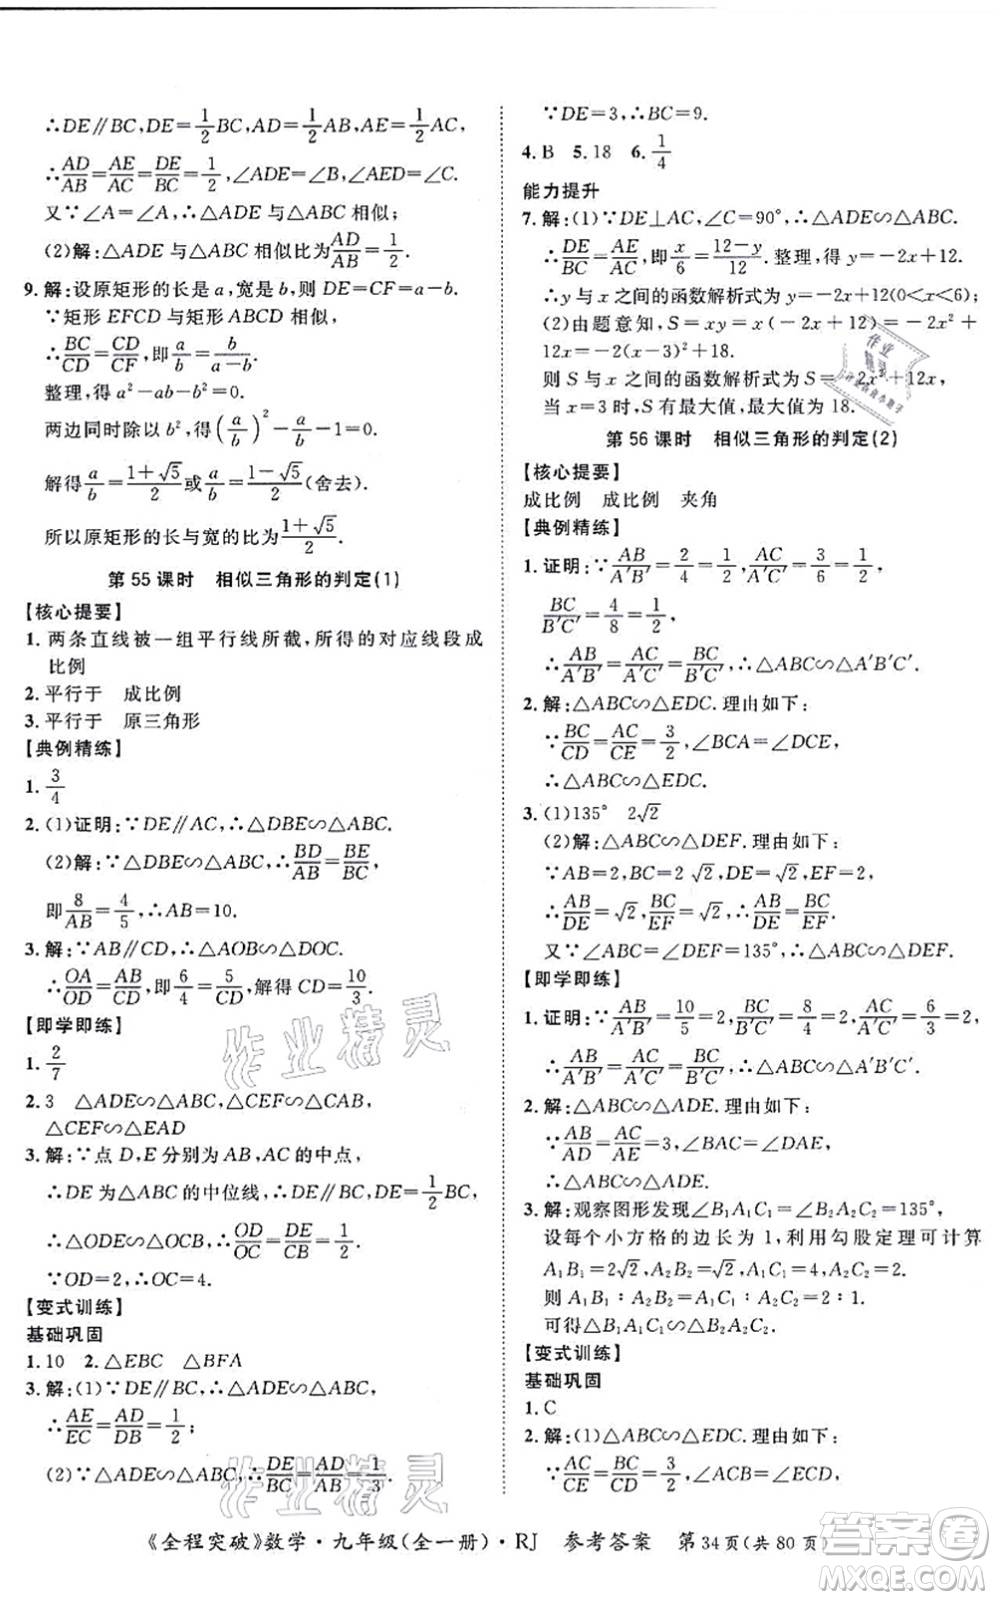 ∴DE∥BC,DE=1/2BC,AD=1/2AB,AE=1/2AC,
∴AD/AB=AE/AC=DE/BC=1/2,∠ADE=∠B,∠AED=∠C.
又∵∠A=∠A,∴△ADE与△ABC相似;
(2)解:△ADE与△ABC相似比为AD/AB=1/2.
9.解:设原矩形的长是a,宽是b,则DE=CF=a-b.
∵矩形EFCD与矩形ABCD相似,
∴BC/CD=CD/CF,即a/b=b/(a-b).
整理,得a²-ab-b²=0.
两边同时除以b²,得(a/b)²-a/b-1=0.
解得a/b=(1+√5)/2或a/b=(1-√5)/2(舍去).
所以原矩形的长与宽的比为(1+√5)/2.
第55课时 相似三角形的判定(1)
【核心提要】
1.两条直线被一组平行线所截,所得的对应线段成
比例
2.平行于 成比例
3.平行于 原三角形
【典例精练】
1.3/4
2.(1)证明:∵DE∥AC,∴△DBE∽△ABC.
(2)解:∵△DBE∽△ABC,∴BD/AB=BE/BC,
即8/AB=4/5,∴AB=10.
3.解:∵AB∥CD,∴△AOB∽△DOC.
∴OA/OD=AB/CD,即6/4=5/CD,解得CD=10/3.
【即学即练】
1.2/7
2.3 △ADE∽△ABC,△CEF∽△CAB,
△CEF∽△EAD
3.解:∵点D,E分别为AB,AC的中点,
∴DE为△ABC的中位线,∴DE∥BC,DE=1/2BC,
∴△ODE∽△OCB,∴OD/OC=DE/CB=1/2.
∵OD=2,∴OC=4.
【变式训练】
基础巩固
1.10 2.△EBC △BFA
3.解:(1)∵DE∥BC,∴△ADE∽△ABC,
∴AE/EC=AD/DB=1/2;
(2)∵△ADE∽△ABC,∴DE/BC=AD/AB=1/3.
∵DE=3,∴BC=9.
4.B 5.18 6.1/4
能力提升
7.解:(1)∵DE⊥AC,∠C=90°,∴△ADE∽△ABC.
∴DE/BC=AE/AC,即x/6=(12-y)/12.整理,得y=-2x+12,
∴y与x之间的函数解析式为y=-2x+12(0<x<6);
(2)由题意知,S=xy=x(-2x+12)=-2x²+
12x=-2(x-3)²+18.
则S与x之间的函数解析式为S=-2x²+12x,
当x=3时,S有最大值,最大值为18.
第56课时 相似三角形的判定(2)
【核心提要】
成比例 成比例 夹角
【典例精练】
1.证明:∵AB/A′B′=2/4=1/2,AC/A′C′=3/6=1/2,
BC/B′C′=4/8=1/2,
∴AB/A′B′=AC/A′C′=BC/B′C′,∴△ABC∽△A′B′C′.
2.解:△ABC∽△EDC.理由如下:
∵BC/CD=AC/CE=3/2,∠BCA=∠DCE,
∴△ABC∽△EDC.
3.(1)135° 2√2
(2)解:△ABC∽△DEF.理由如下:
∵AB=2,BC=2√2,DE=√2,EF=2,
∴AB/DE=√2,BC/EF=√2,∴AB/DE=BC/EF.
又∵∠ABC=∠DEF=135°,∴△ABC∽△DEF.
【即学即练】
1.证明:∵AB/A′B′=10/5=2,BC/B′C′=8/4=2,AC/A′C′=6/3=2,
∴AB/A′B′=AC/A′C′=BC/B′C′,∴△ABC∽△A′B′C′.
2.解:△ABC∽△ADE.理由如下:
∵AB/AD=AC/AE=3,∠BAC=∠DAE,
∴△ABC∽△ADE.
3.解:观察图形发现∠B₁A₁C₁=∠B₂A₂C₂=135°,
设每个小方格的边长为1,利用勾股定理可计算
A₁B₁=2√2,A₂B₂=√2,A₁C₁=4,A₂C₂=2.
则A₁B₁∶A₂B₂=A₁C₁∶A₂C₂=2∶1.
可得△A₁B₁C₁∽△A₂B₂C₂.
【变式训练】
基础巩固
1.C
2.解:(1)△ABC∽△EDC.理由如下:
∵AC/CE=BC/CD=3/2,∠ACB=∠ECD,
《全程突破》数学·九年级(全一册)·RJ 参考答案 第34页(共80页)
作业精灵
作业精灵
答案圈
MXQE.COM